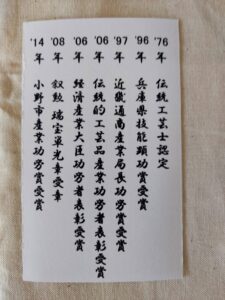 '76年 伝統工芸士認定
'96年 兵庫県技能顕功賞受賞
'97年 近畿通商産業局長功労賞受賞
'06年 伝統的工芸品産業功労者表彰受賞
'06年 経済産業大臣功労者表彰受賞
'08年 叙勲 瑞宝単光章受章
'14年 小野市産業功労賞受賞